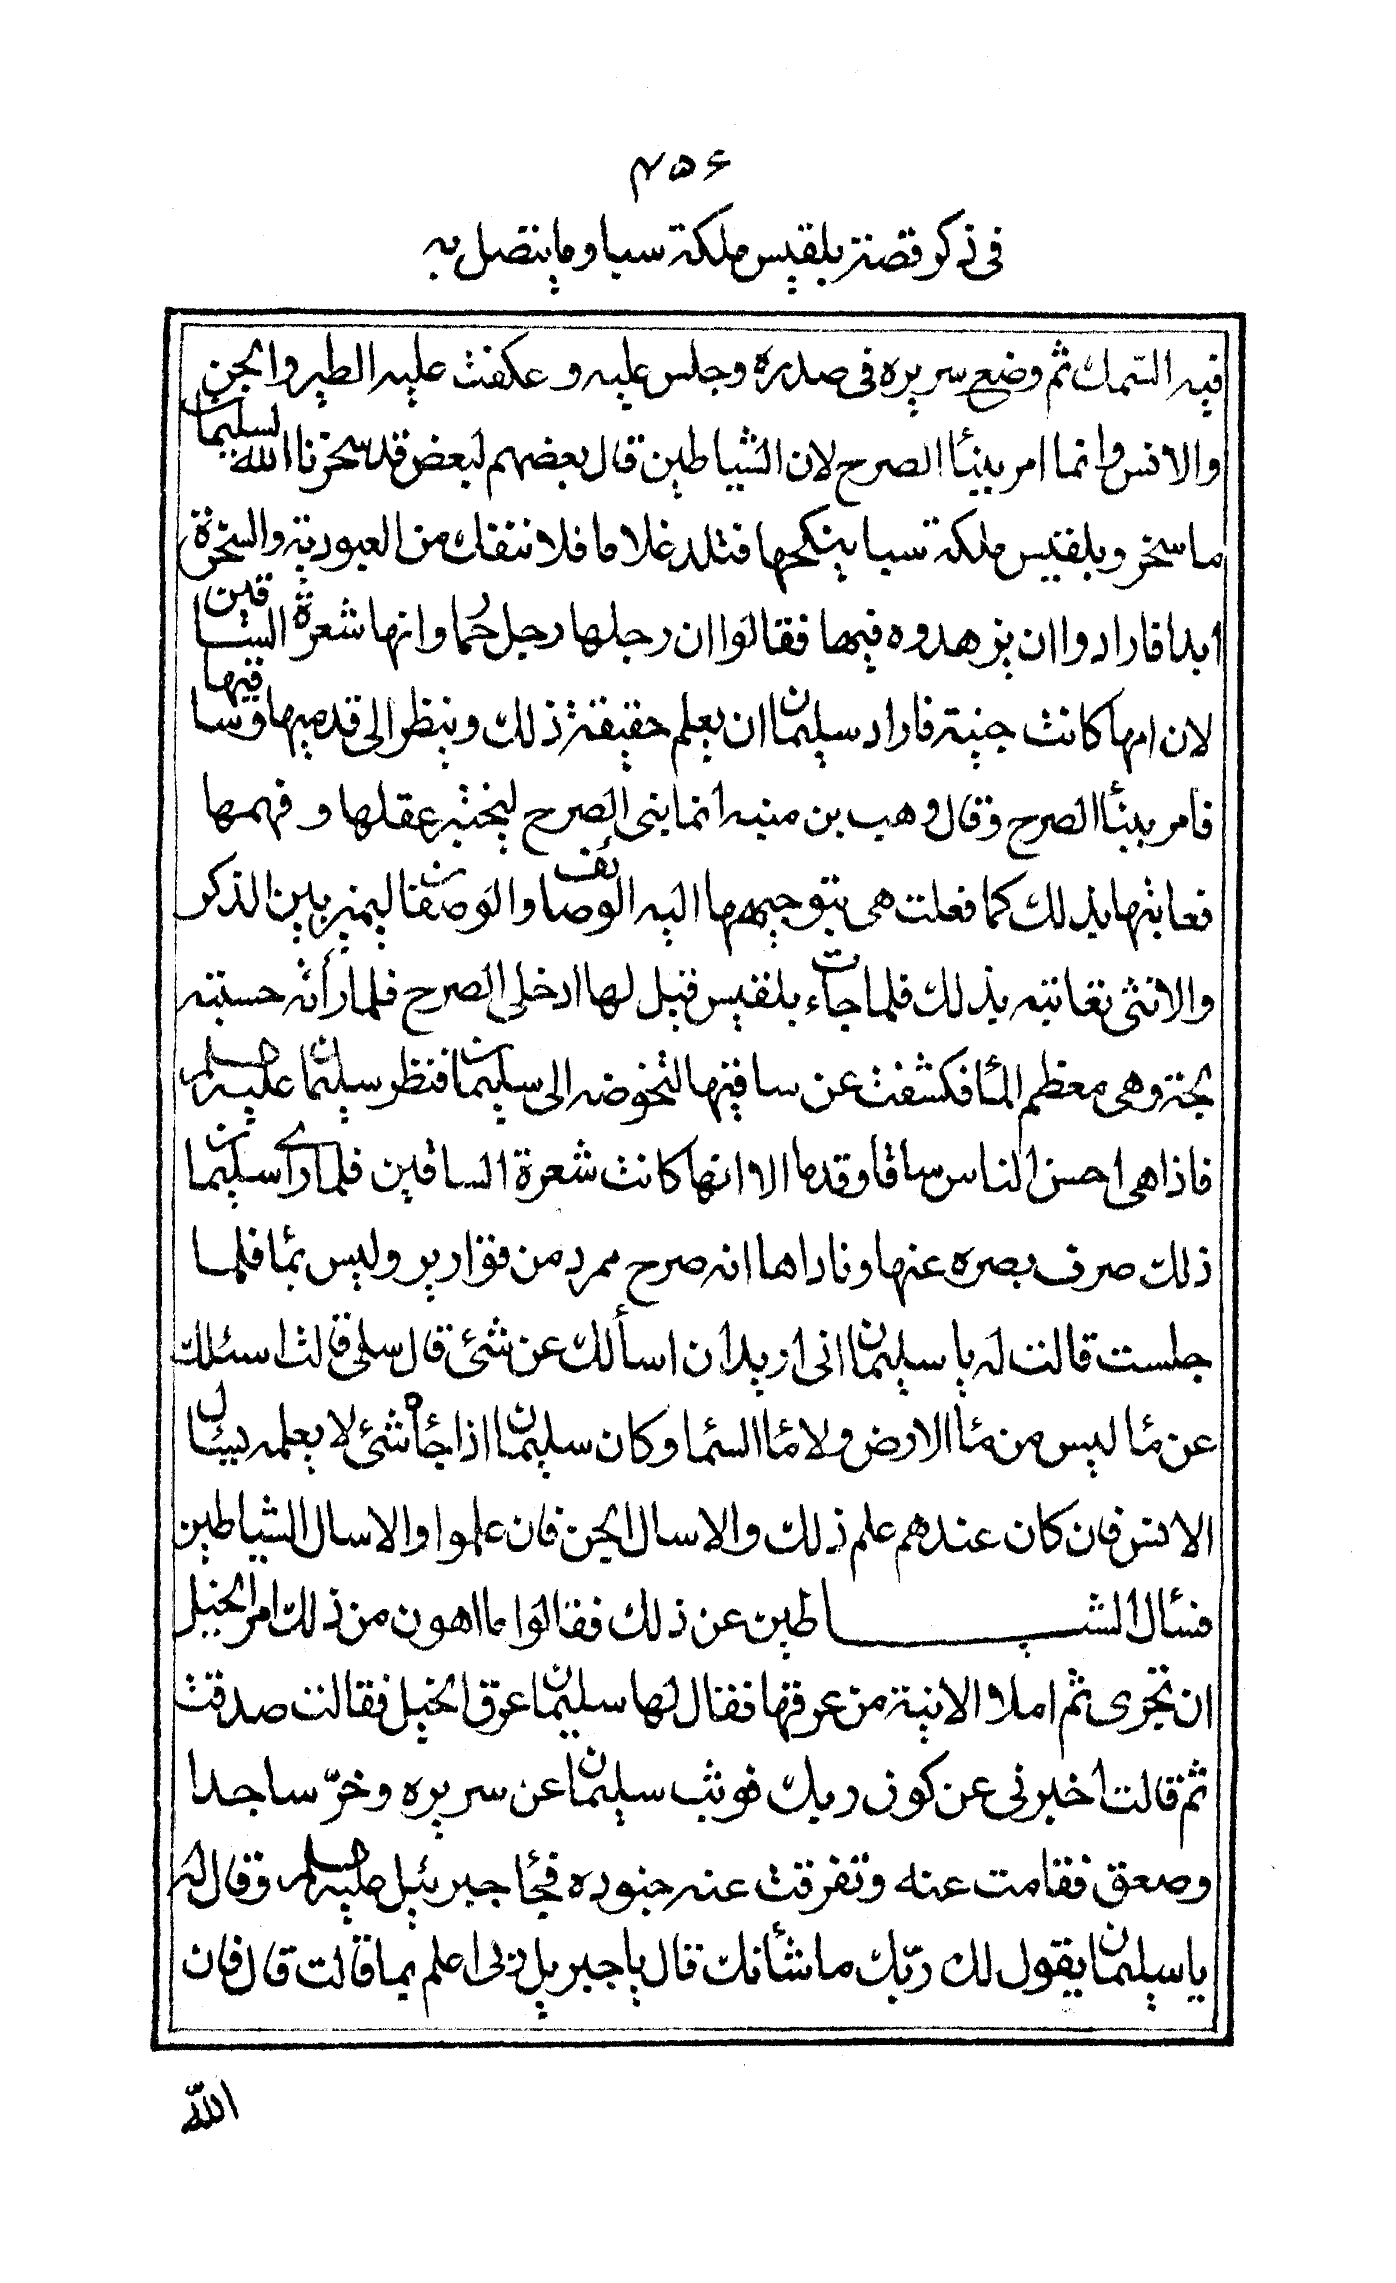 ۴۵۶
في ذكر قصة بلقيس ملكة سبا وما يتصل به
فيه السمك ثم وضع سريره في صدره وجلس عليه و عكفت عليه الطير والجن
والانس وانما امر ببنأ الصرح لان الشياطين قال بعضهم لبعض قد سخرنا الله لسليمان
ما سخر وبلقيس ملكة سبا ينكحها فتلد غلاما فلا ننفك من العبودية والسخرة
ابدا فارادوا ان يزهدوه فيها فقالوا ان رجلها رجل حمار وانها شعرة الساقين
لان امها كانت جنية فاراد سليمان ان يعلم حقيقة ذلك وينظر الى قدميها وساقيها
فامر ببنأ الصرح وقال وهب بن منبه انما بنى الصرح ليختبر عقلها و فهمها
فعايتها بذلك كما فعلت هي بتوجيهها اليه الوصائف والوصفا ليميز بين الذكر
والانثى تعانته بذلك فلما جاءت بلقيس قيل لها ادخلى الصرح فلما رأته حسبته
لجة وهي معظم المأ فكشفت عن ساقيها لتخوضه الى سليمان فنظر سليمان عليه السلم
فاذا هي احسن الناس ساقا وقدما الا انها كانت شعرة الساقين فلما راى سليمان
ذلك صرف بصره عنها وناداها انه صرح ممرد من قوارير وليس بمأ فلما
جلست قالت له يا سليمان انى اريد ان اسألك عن شئ قال سلى قالت اسئلك
عن مأ ليس من مأ الارض ولا مأ السما وكان سليمان اذا جأه شئ لا يعلمه يسأل
الانس فان كان عندهم علم ذلك والا سال الجن فان علموا والا سال الشياطين
فسأل الشياطين عن ذلك فقالوا ما اهون من ذلك امر الخيل
ان تجرى ثم املا الانية من عرقها فقال لها سليمان عرق الخيل فقالت صدقت
ثم قالت اخبرنى عن كون ربك فوثب سليمان عن سريره وخرّ ساجدا
وصعق فقامت عنه وتفرقت عنه جنوده فجأ جبرئيل عليه السلم وقال له
يا سليمان يقول لك ربّك ما شأنك قال يا جبريل ربى اعلم بما قالت قال فان
الله